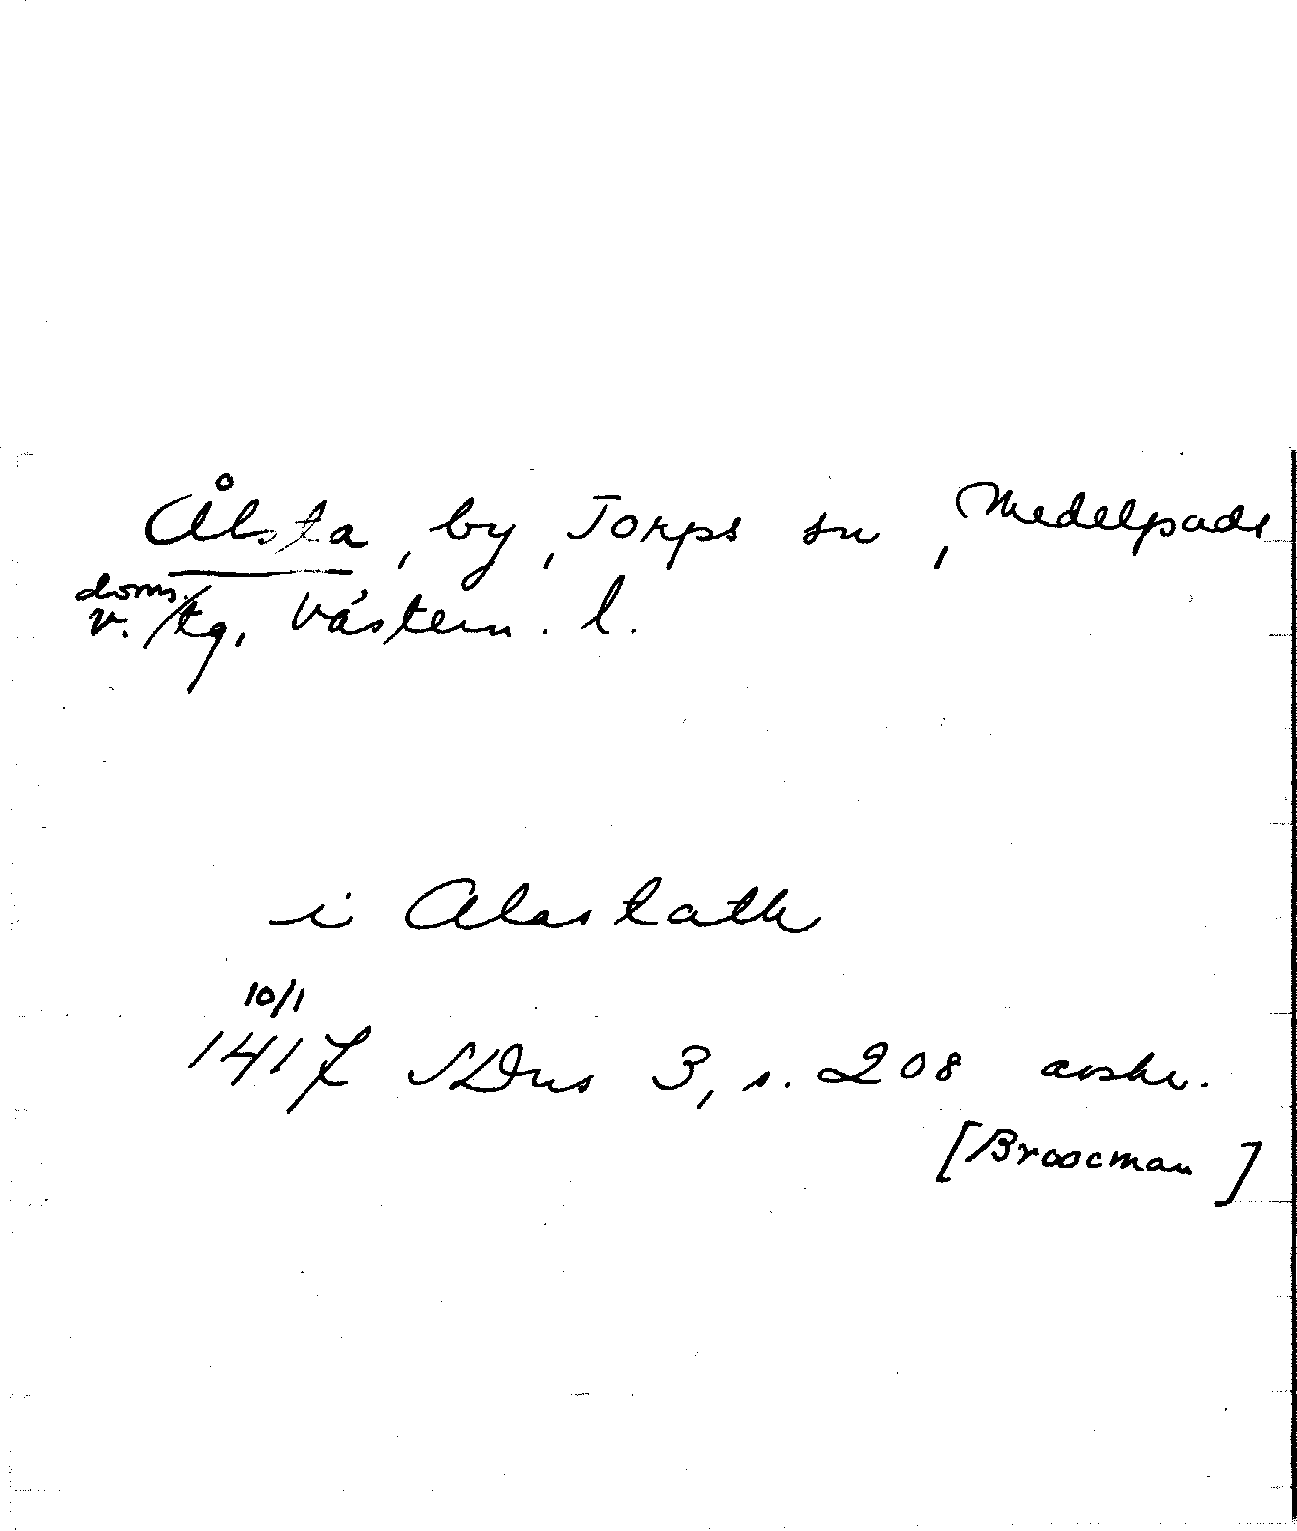 Ålsta, by, Torps sn, Medelpads
v. doms./tg, Västern. l.
i Alastath
10/1
1417 SDns 3, s. 208 avskr.
[Broocman]